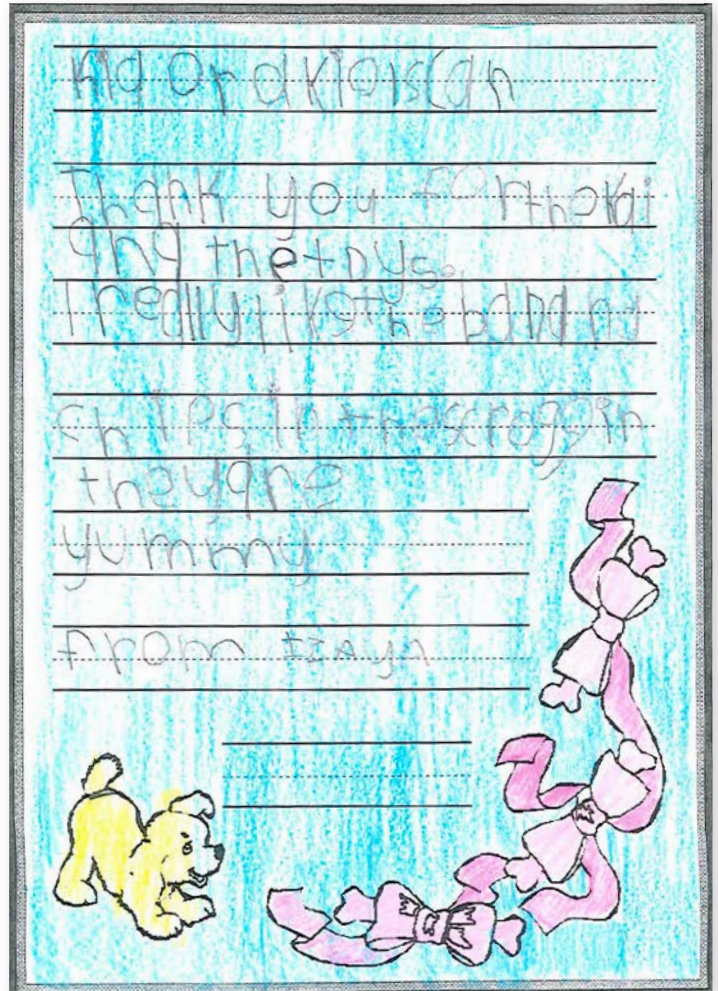 Kia ora kidscan
Thank you for the kai
and the toys.
I really like the banana
chips in the scroggin
they are
yummy
from